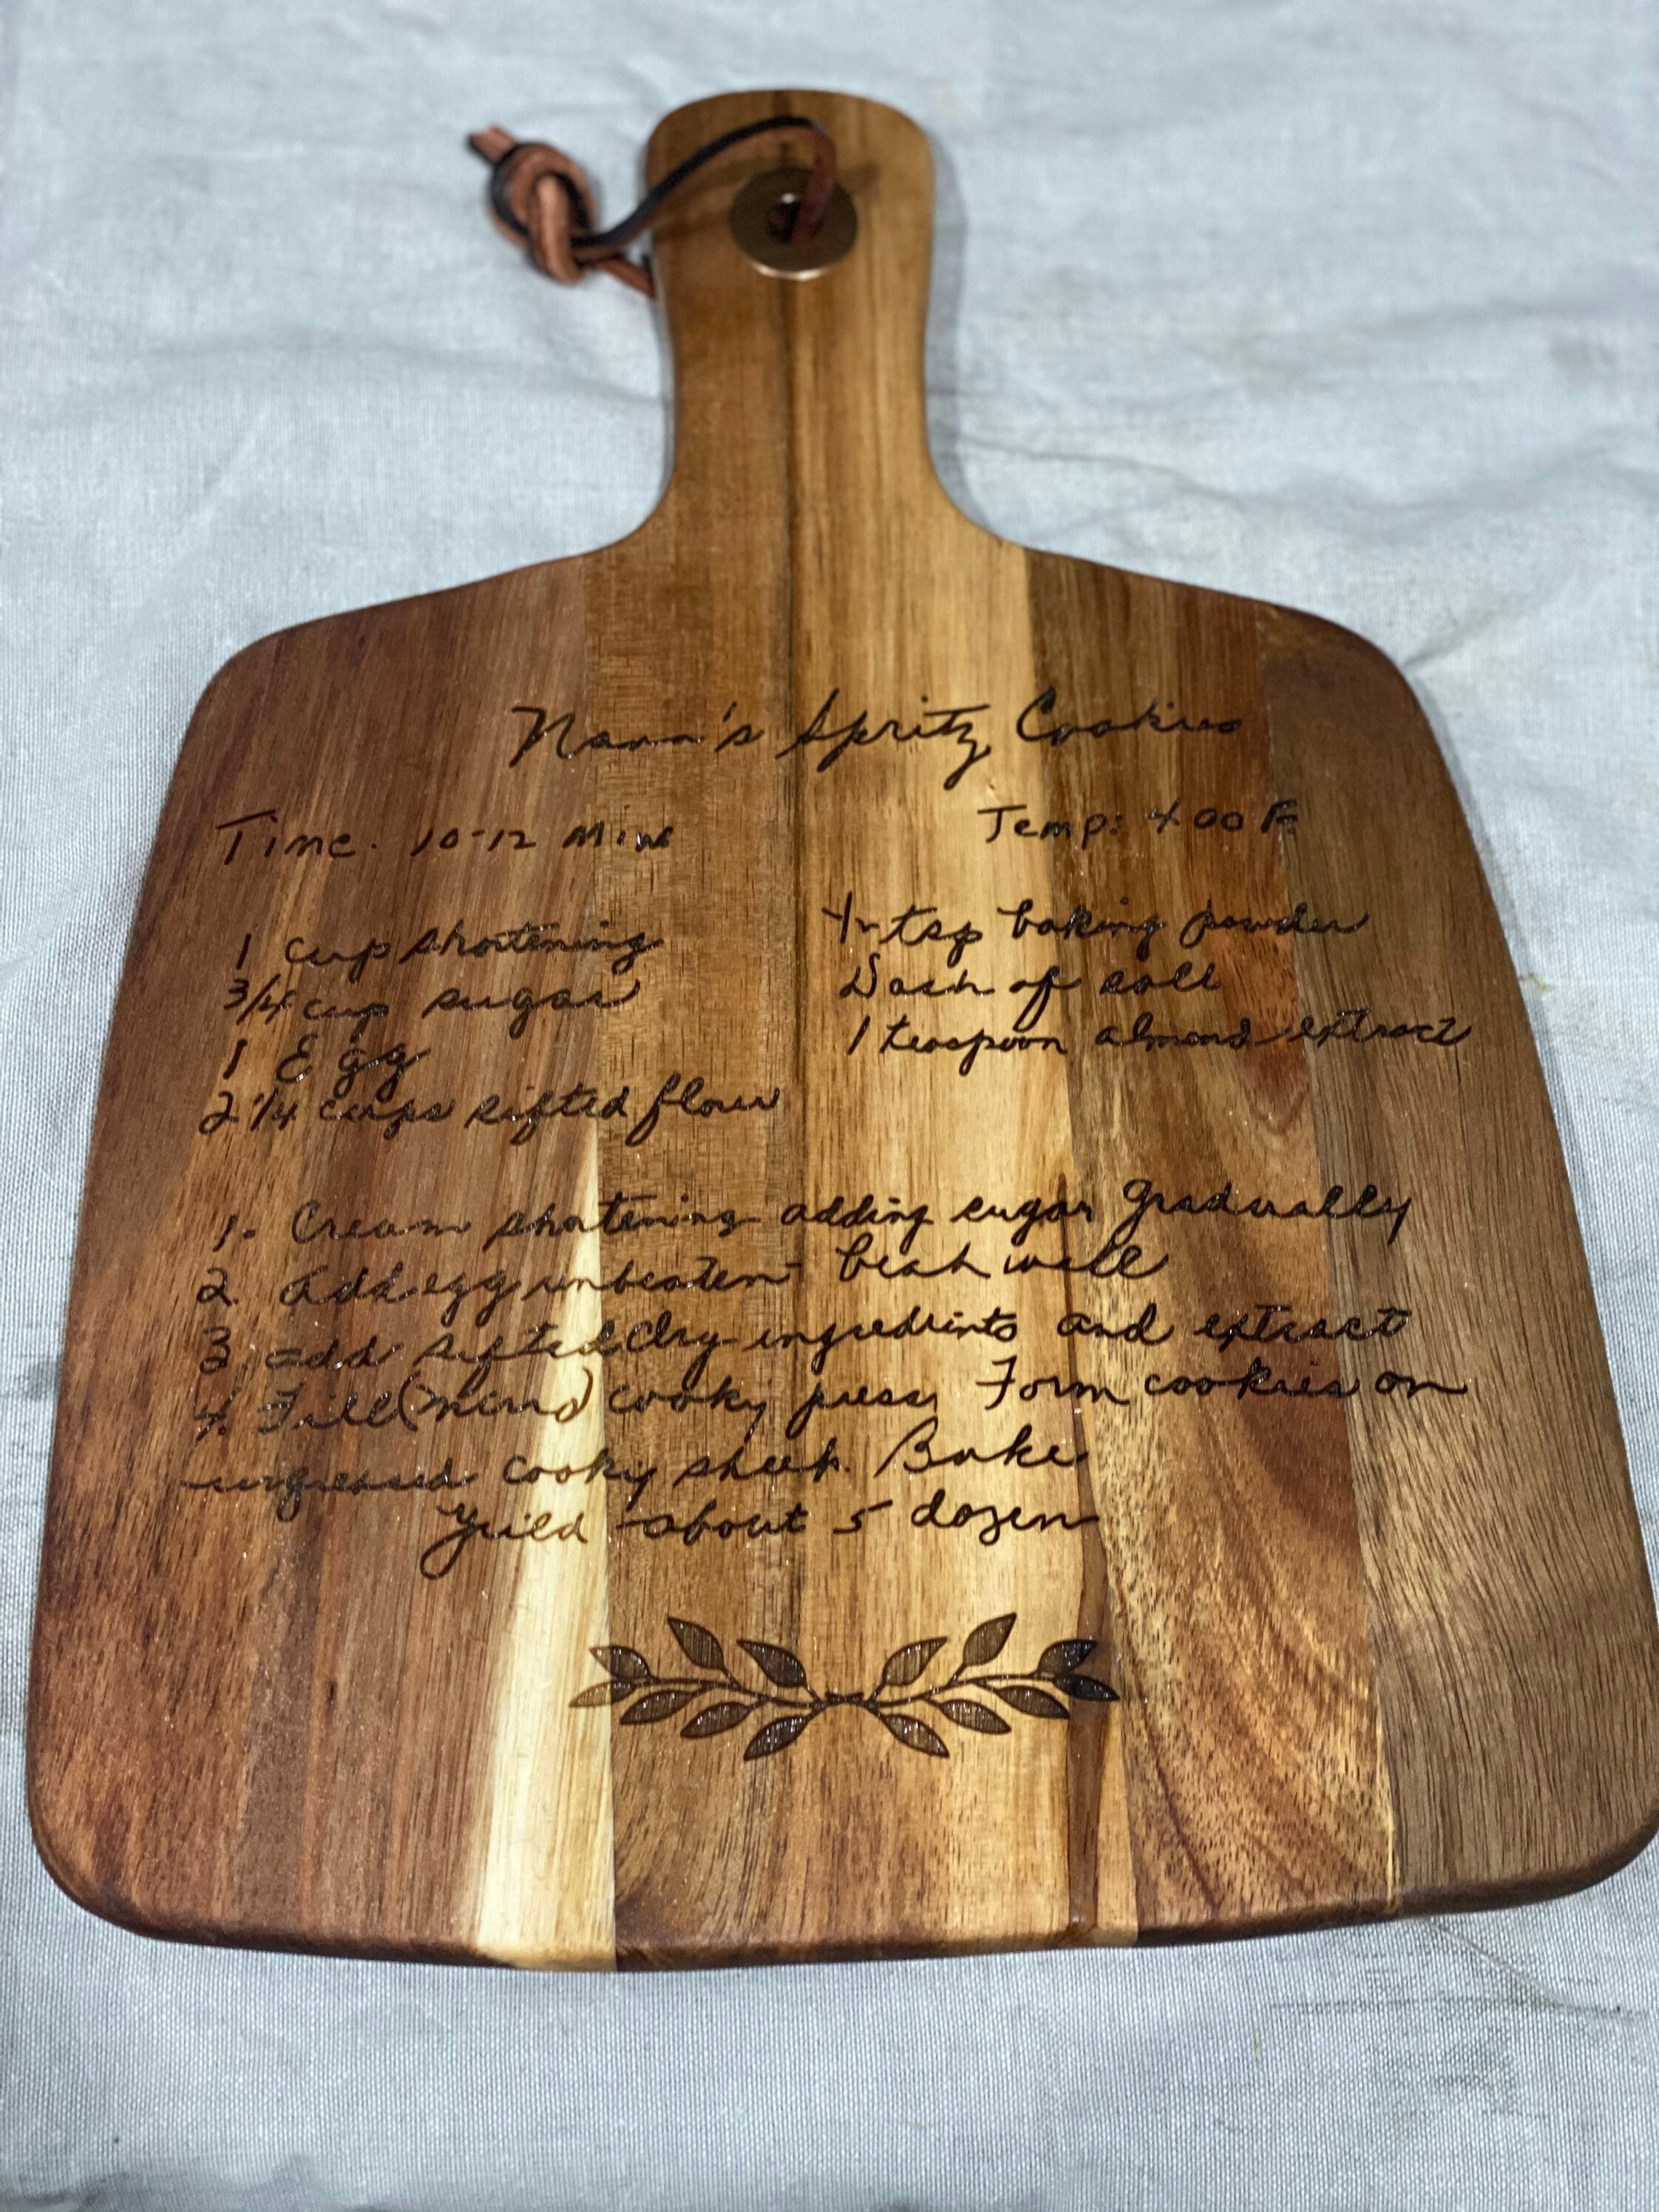 Nana's Spritz Cookies
Time. 10-12 Min
Temp: 400 F
1 cup shortening
3/4 cup sugar
1 Egg
2 1/4 cups sifted flour
tsp baking powder
Dash of salt
1 teaspoon almond extract
1. Cream shortening adding sugar gradually
2. add egg unbeaten - beat well
3 add sifted dry ingredients and extract
4. Fill (Mirro) cooky press, Form cookies on
ungreased cooky sheet. Bake
Yield - about 5 dozen